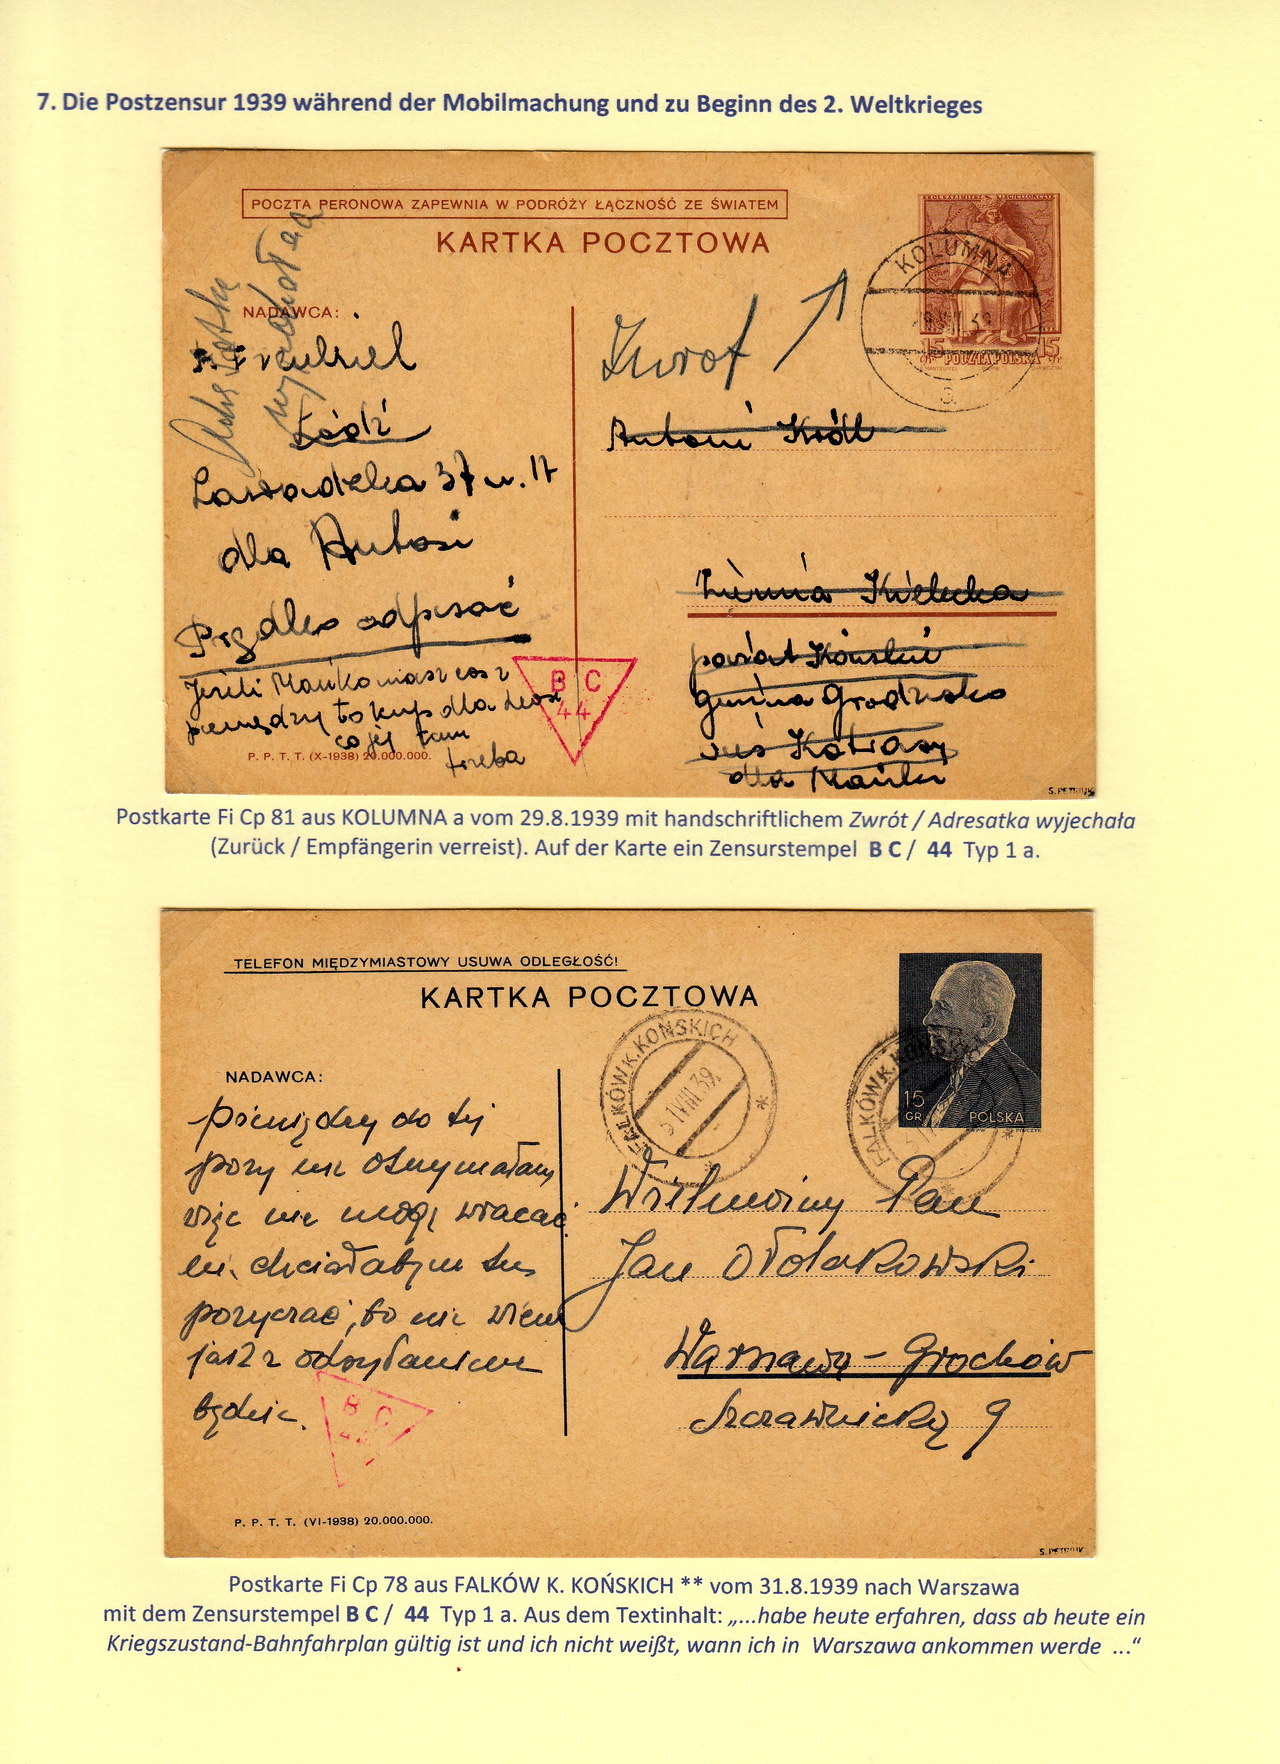 7. Die Postzensur 1939 während der Mobilmachung und zu Beginn des 2. Weltkrieges
POCZTA PERONOWA ZAPEWNIA W PODRÓŻY ŁĄCZNOŚĆ ZE ŚWIATEM
KARTKA POCZTOWA
KOLUMNA
a
15 15
POCZTA POLSKA
NADAWCA:
Adresatka
wyjechała
Zwrot
Łódź
37 m. 17
dla Antosi
Prędko odpisać
Jeżeli Mańko masz coś z
pieniędzy to kup dla
co jej tam
trzeba
Antoni Król
Ziemia Kielecka
powiat Końskie
gmina Grodzisko
wieś Kotwasy
dla Mańki
B C
44
P. P. T. T. (X-1938) 20.000.000.
S. PETRIUK
Postkarte Fi Cp 81 aus KOLUMNA a vom 29.8.1939 mit handschriftlichem Zwrót / Adresatka wyjechała
(Zurück / Empfängerin verreist). Auf der Karte ein Zensurstempel B C / 44 Typ 1 a.
TELEFON MIĘDZYMIASTOWY USUWA ODLEGŁOŚĆ!
KARTKA POCZTOWA
FAŁKÓW K. KOŃSKICH
31 VIII 39
FAŁKÓW K. KOŃSKICH
15
GR
POLSKA
NADAWCA:
pieniędzy do tej
pory nie otrzymałam
więc nie mogę wracać
chciałabym tu
pożyczać, to nie wiem
jak z odsyłaniem
będzie.
B C
Wielmożny Pan
Jan Ołdakowski
Warszawa - Grochów
Szczawnicka 9
P. P. T. T. (VI-1938) 20.000.000.
S. PETRIUK
Postkarte Fi Cp 78 aus FALKÓW K. KOŃSKICH ** vom 31.8.1939 nach Warszawa
mit dem Zensurstempel B C / 44 Typ 1 a. Aus dem Textinhalt: „...habe heute erfahren, dass ab heute ein
Kriegszustand-Bahnfahrplan gültig ist und ich nicht weißt, wann ich in Warszawa ankommen werde ...“